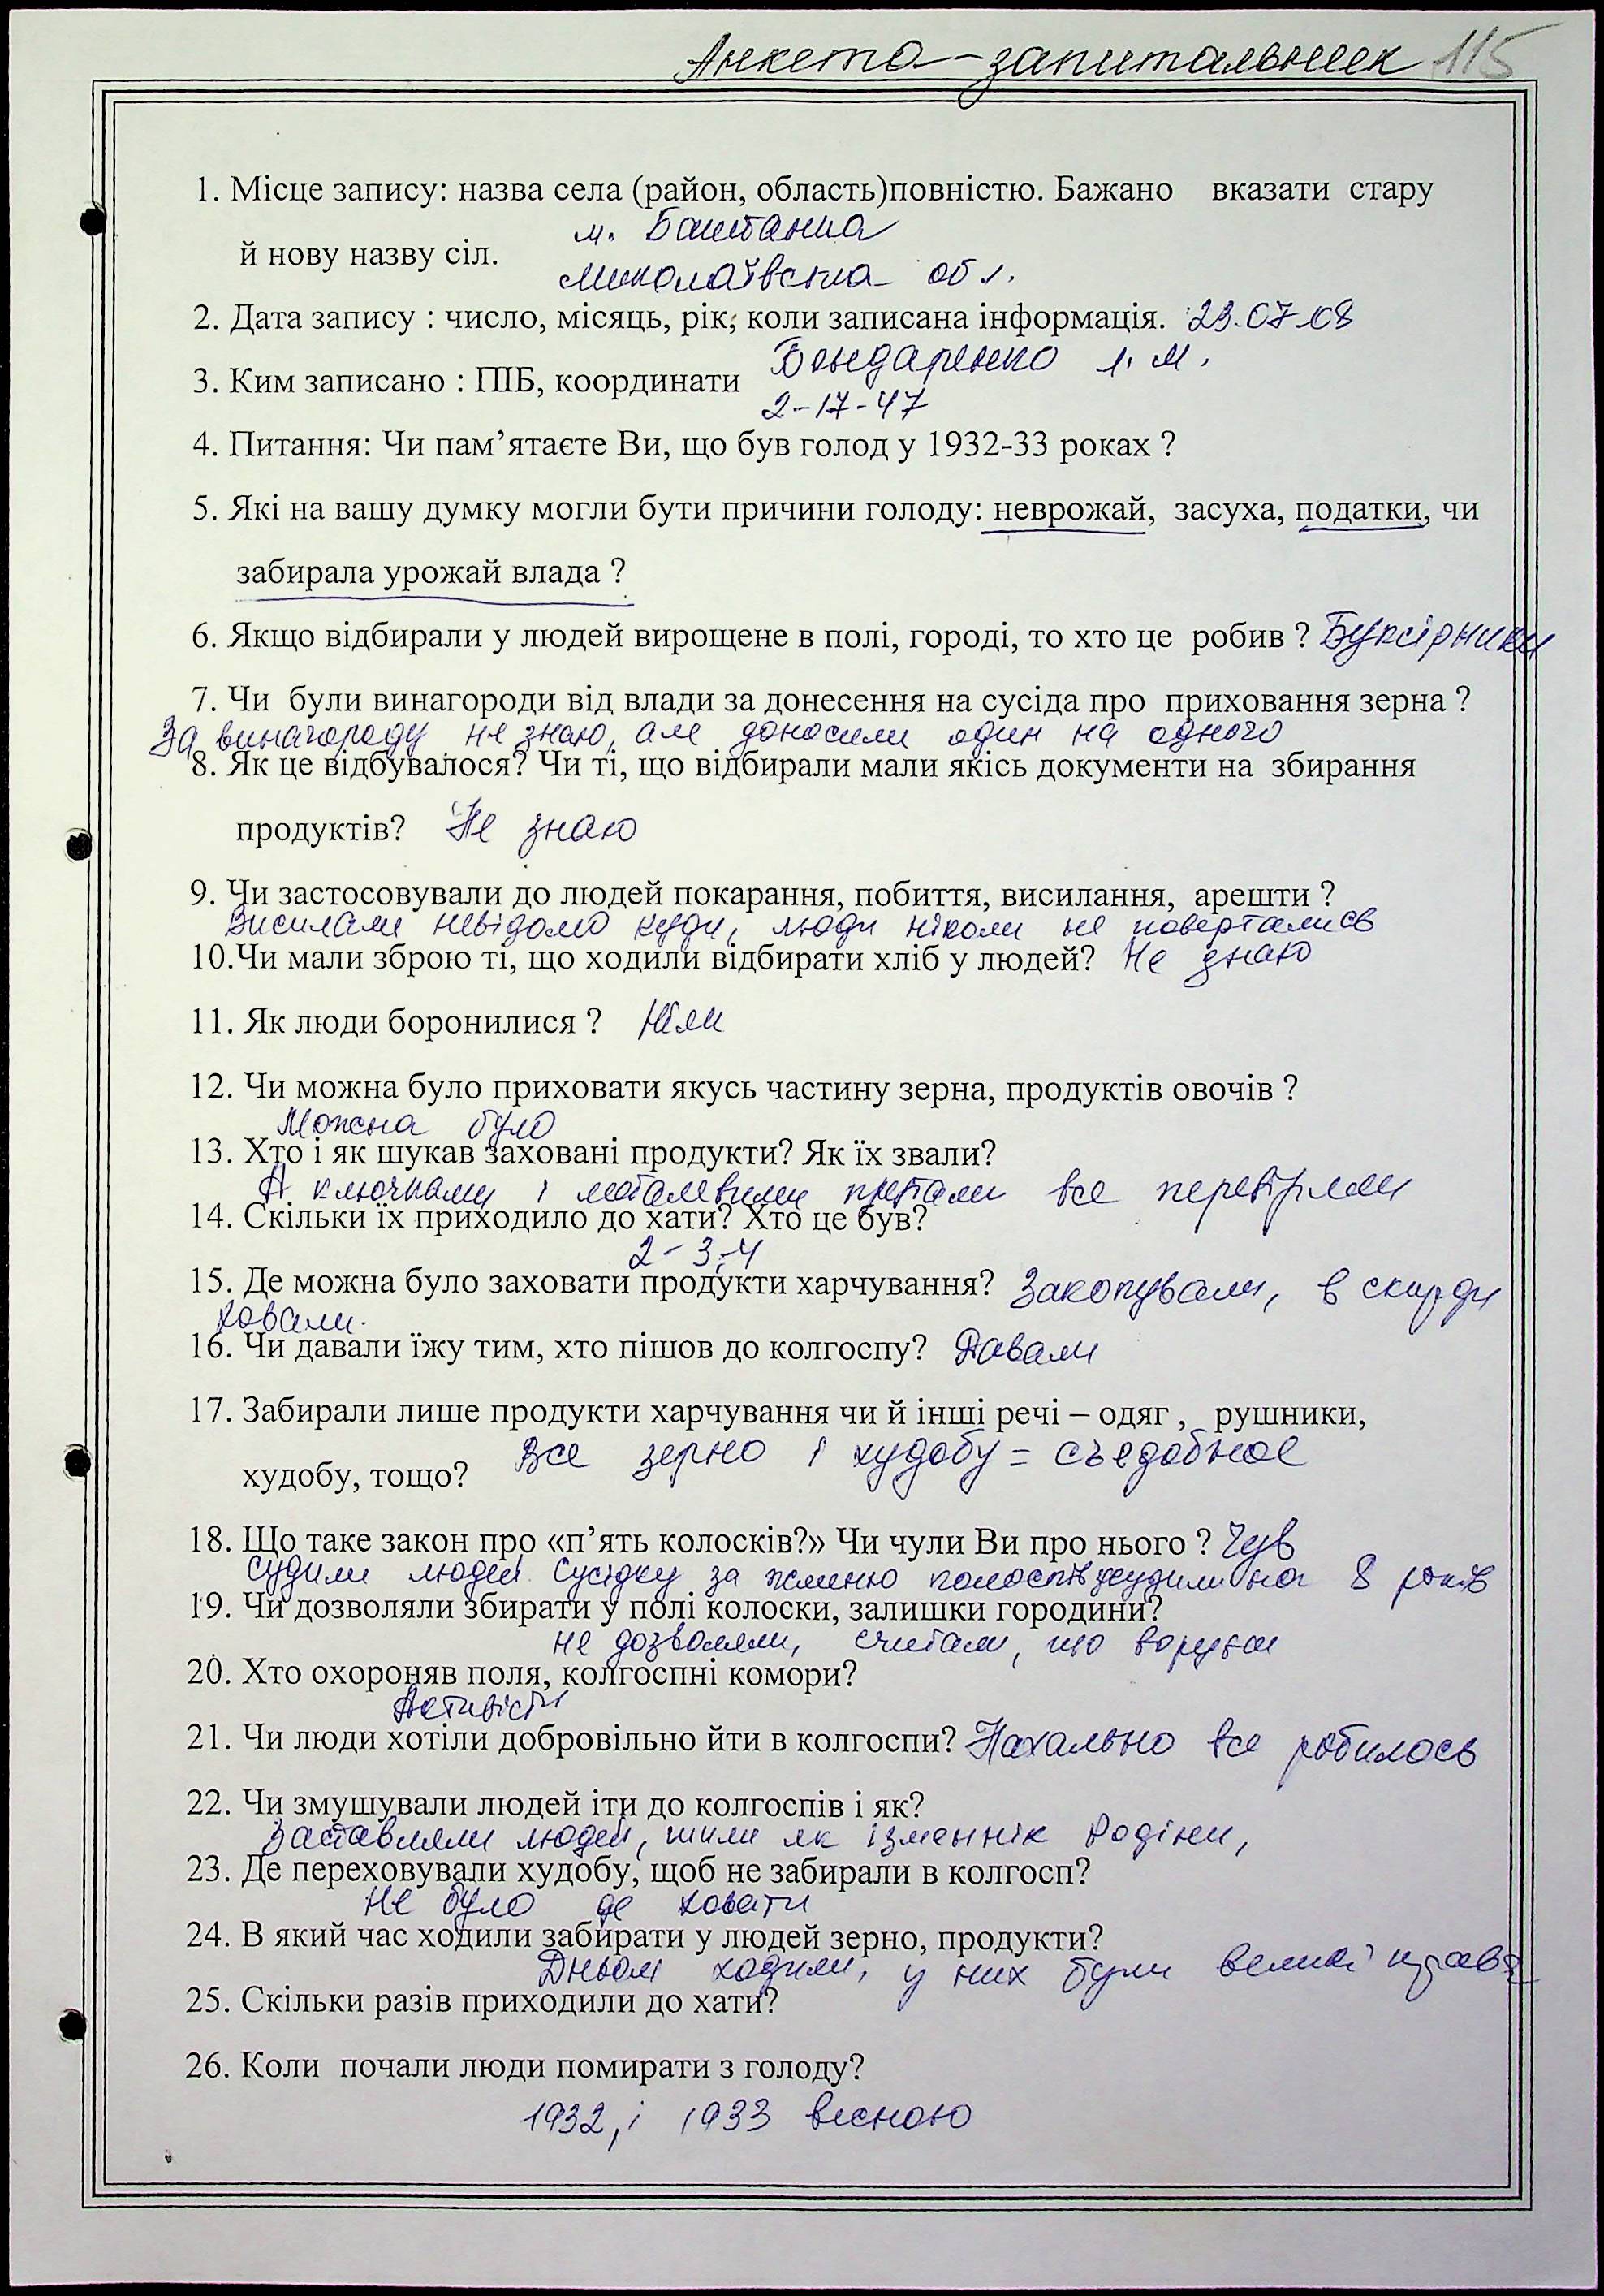 Анкета-запитальник 115
1. Місце запису: назва села (район, область)повністю. Бажано вказати стару
м. Баштанка
й нову назву сіл.
Миколаївська обл.
2. Дата запису : число, місяць, рік, коли записана інформація. 23.07.08
Бондаренко Л. М.
3. Ким записано : ПІБ, координати
2-17-47
4. Питання: Чи пам’ятаєте Ви, що був голод у 1932-33 роках ?
5. Які на вашу думку могли бути причини голоду: неврожай, засуха, податки, чи
забирала урожай влада ?
6. Якщо відбирали у людей вирощене в полі, городі, то хто це робив ? Буксірники
7. Чи були винагороди від влади за донесення на сусіда про приховання зерна ?
За винагороду не знаю, але доносили один на одного
8. Як це відбувалося? Чи ті, що відбирали мали якісь документи на збирання
продуктів? Не знаю
9. Чи застосовували до людей покарання, побиття, висилання, арешти ?
Висилали невідомо куди, люди ніколи не повертались
10.Чи мали зброю ті, що ходили відбирати хліб у людей? Не знаю
11. Як люди боронилися ?
12. Чи можна було приховати якусь частину зерна, продуктів овочів ?
Можна було
13. Хто і як шукав заховані продукти? Як їх звали?
ключками і металевими все перевіряли
14. Скільки їх приходило до хати? Хто це був?
2-3-4
15. Де можна було заховати продукти харчування? Закопували, в скирди
ховали.
16. Чи давали їжу тим, хто пішов до колгоспу? Давали
17. Забирали лише продукти харчування чи й інші речі – одяг , рушники,
Все зерно і худобу = съедобное
худобу, тощо?
18. Що таке закон про «п’ять колосків?» Чи чули Ви про нього ? Чув
судили людей. Сусідку за жменю колосків усудили на 8 років
19. Чи дозволяли збирати у полі колоски, залишки городини?
не дозволяли, считали, що
20. Хто охороняв поля, колгоспні комори?
Активісти
21. Чи люди хотіли добровільно йти в колгоспи? Нахально все робилось
22. Чи змушували людей іти до колгоспів і як?
Заставляли людей, шили як ізменнік Родіни,
23. Де переховували худобу, щоб не забирали в колгосп?
Не було де ховати
24. В який час ходили забирати у людей зерно, продукти?
Дньом ходили, у них були великі права
25. Скільки разів приходили до хати?
26. Коли почали люди помирати з голоду?
1932, і 1933 весною